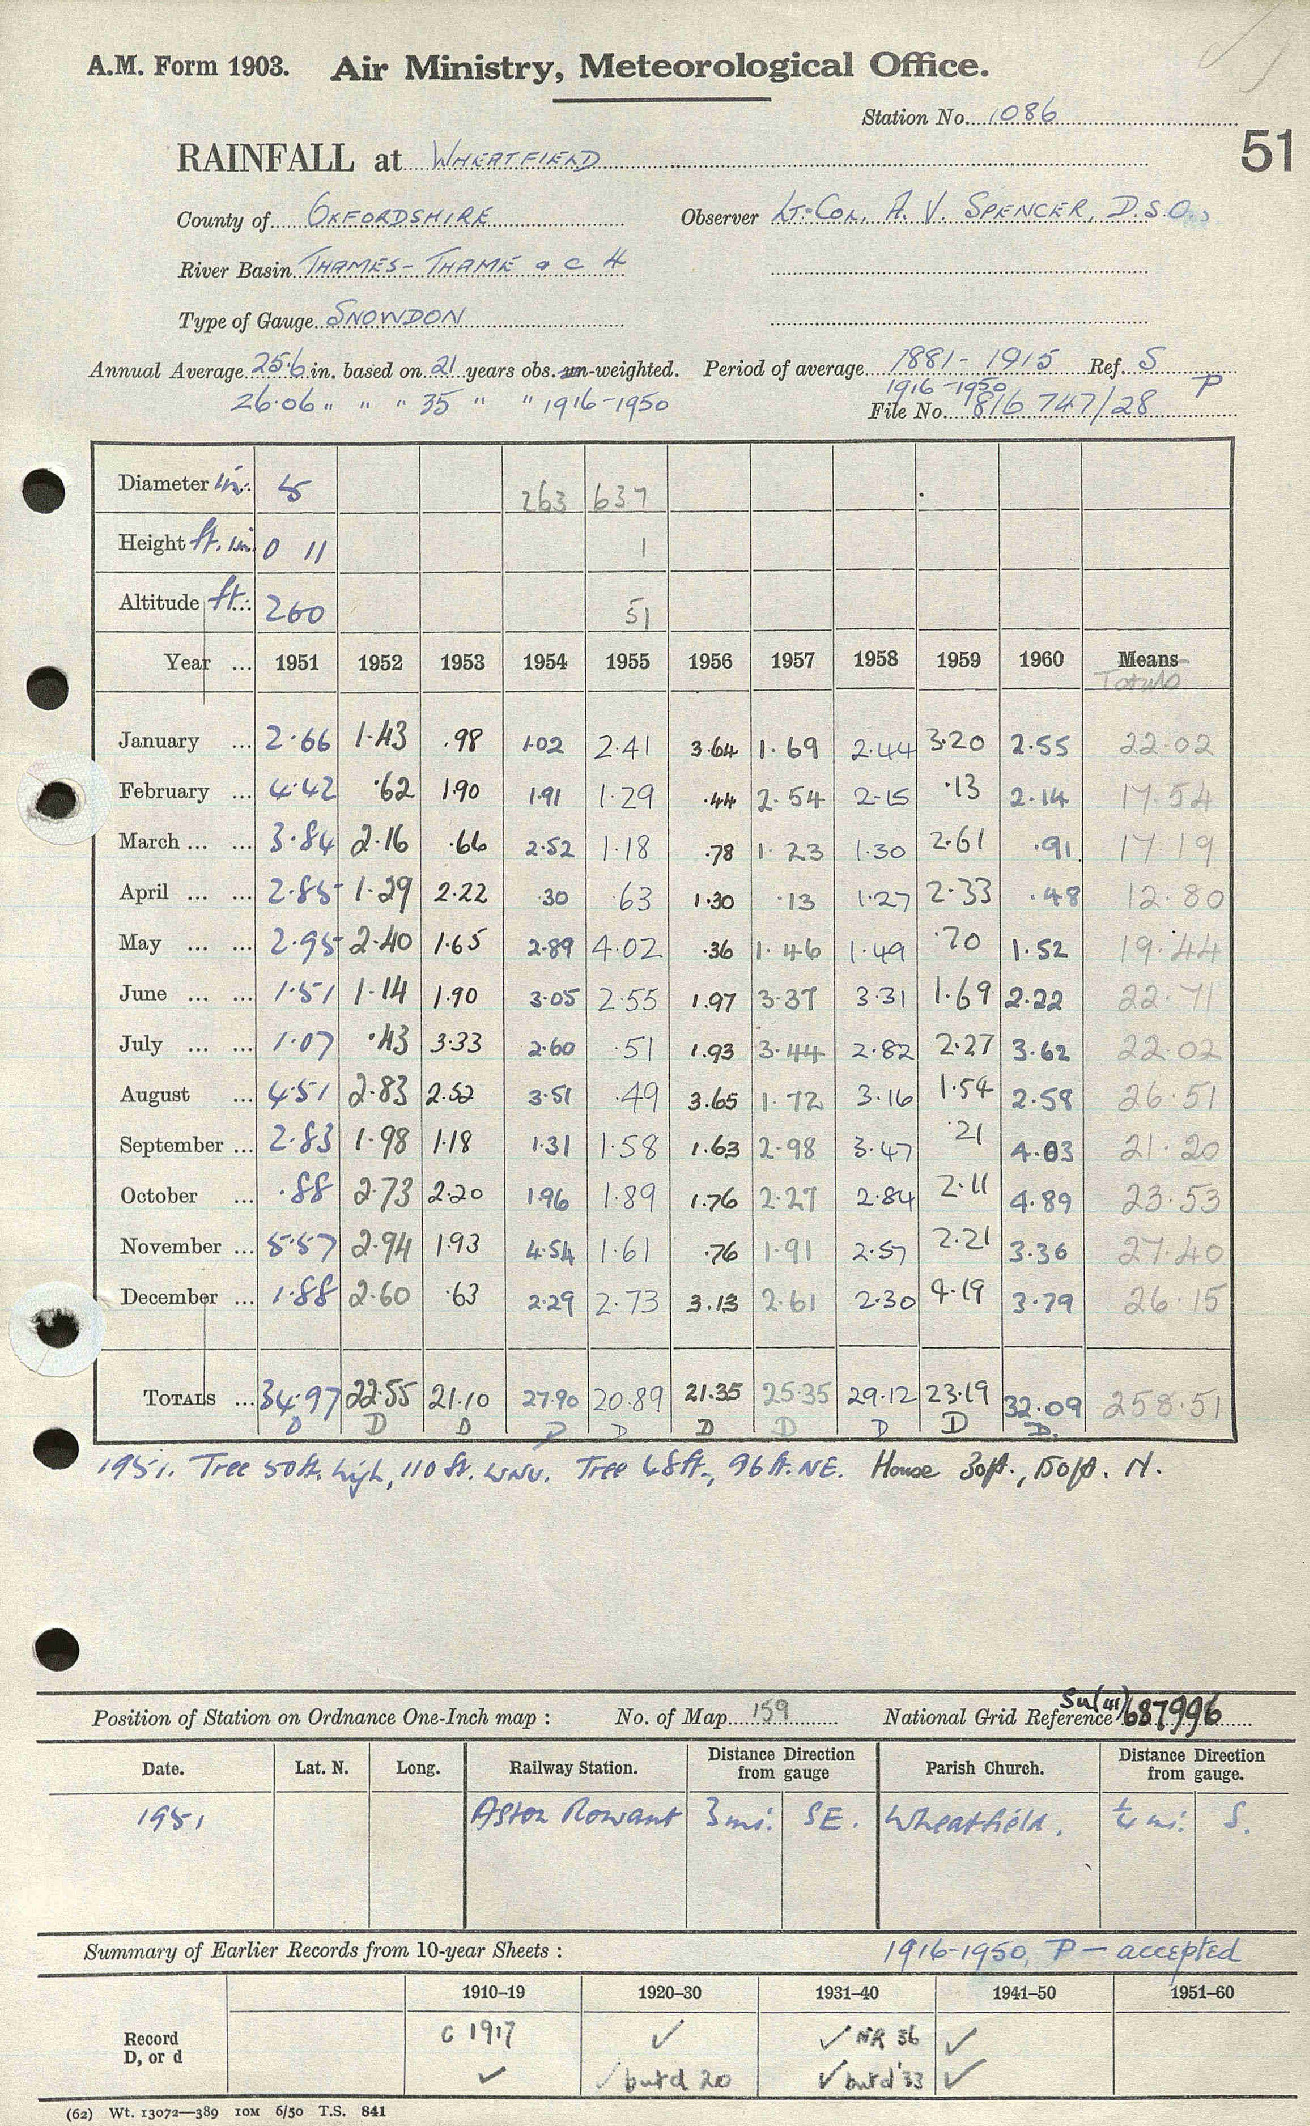 A.M. Form 1903. Air Ministry, Meteorological Office.
Station No. 1086
51
RAINFALL at WHEATFIELD
County of OXFORDSHIRE Observer LT-COL. A. V. SPENCER, D.S.O.
River Basin THAMES - THAME a c 4
Type of Gauge SNOWDON
Annual Average 25.6 in. based on 21 years obs. un-weighted. Period of average 1881-1915 Ref. S
26.06 " " " 35 " " 1916-1950 1916-1950 P
File No. 816 747/28
Diameter in. 5 263 637
Height ft. in. 0 11 1
Altitude ft. 260 51
Year ... 1951 1952 1953 1954 1955 1956 1957 1958 1959 1960 Means
Totals
January ... 2.66 1.43 .98 1.02 2.41 3.64 1.69 2.44 3.20 2.55 22.02
February ... 4.42 .62 1.90 1.91 1.29 .44 2.54 2.15 .13 2.14 17.54
March ... ... 3.84 2.16 .66 2.52 1.18 .78 1.23 1.30 2.61 .91 17.19
April ... ... 2.85 1.29 2.22 .30 .63 1.30 .13 1.27 2.33 .48 12.80
May ... ... 2.95 2.40 1.65 2.89 4.02 .36 1.46 1.49 .70 1.52 19.44
June ... ... 1.51 1.14 1.90 3.05 2.55 1.97 3.37 3.31 1.69 2.22 22.71
July ... ... 1.07 .43 3.33 2.60 .51 1.93 3.44 2.82 2.27 3.62 22.02
August ... 4.51 2.83 2.52 3.51 .49 3.65 1.72 3.16 1.54 2.58 26.51
September ... 2.83 1.98 1.18 1.31 1.58 1.63 2.98 3.47 .21 4.03 21.20
October ... .88 2.73 2.20 1.96 1.89 1.76 2.27 2.84 2.11 4.89 23.53
November ... 5.57 2.94 1.93 4.54 1.61 .76 1.91 2.57 2.21 3.36 27.40
December ... 1.88 2.60 .63 2.29 2.73 3.13 2.61 2.30 4.19 3.79 26.15
TOTALS ... 34.97 22.55 21.10 27.90 20.89 21.35 25.35 29.12 23.19 32.09 258.51
D D D D D D D D D D.
1951. Tree 50ft. high, 110 ft. WNW. Tree 68ft., 96 ft. NE. House 30ft., 150ft. N.
Position of Station on Ordnance One-Inch map : No. of Map 159 National Grid Reference SU(41) 687996
Date. Lat. N. Long. Railway Station. Distance from gauge Direction Parish Church. Distance from gauge. Direction
1951 Aston Rowant 3 mi. SE. Wheatfield. ¼ mi. S.
Summary of Earlier Records from 10-year Sheets : 1916-1950, P - accepted
1910-19 1920-30 1931-40 1941-50 1951-60
Record C 1917 ✓ ✓ NR 36 ✓
D, or d ✓ ✓ but d 20 ✓ but d '33 ✓
(62) Wt. 13072—389 10M 6/50 T.S. 841